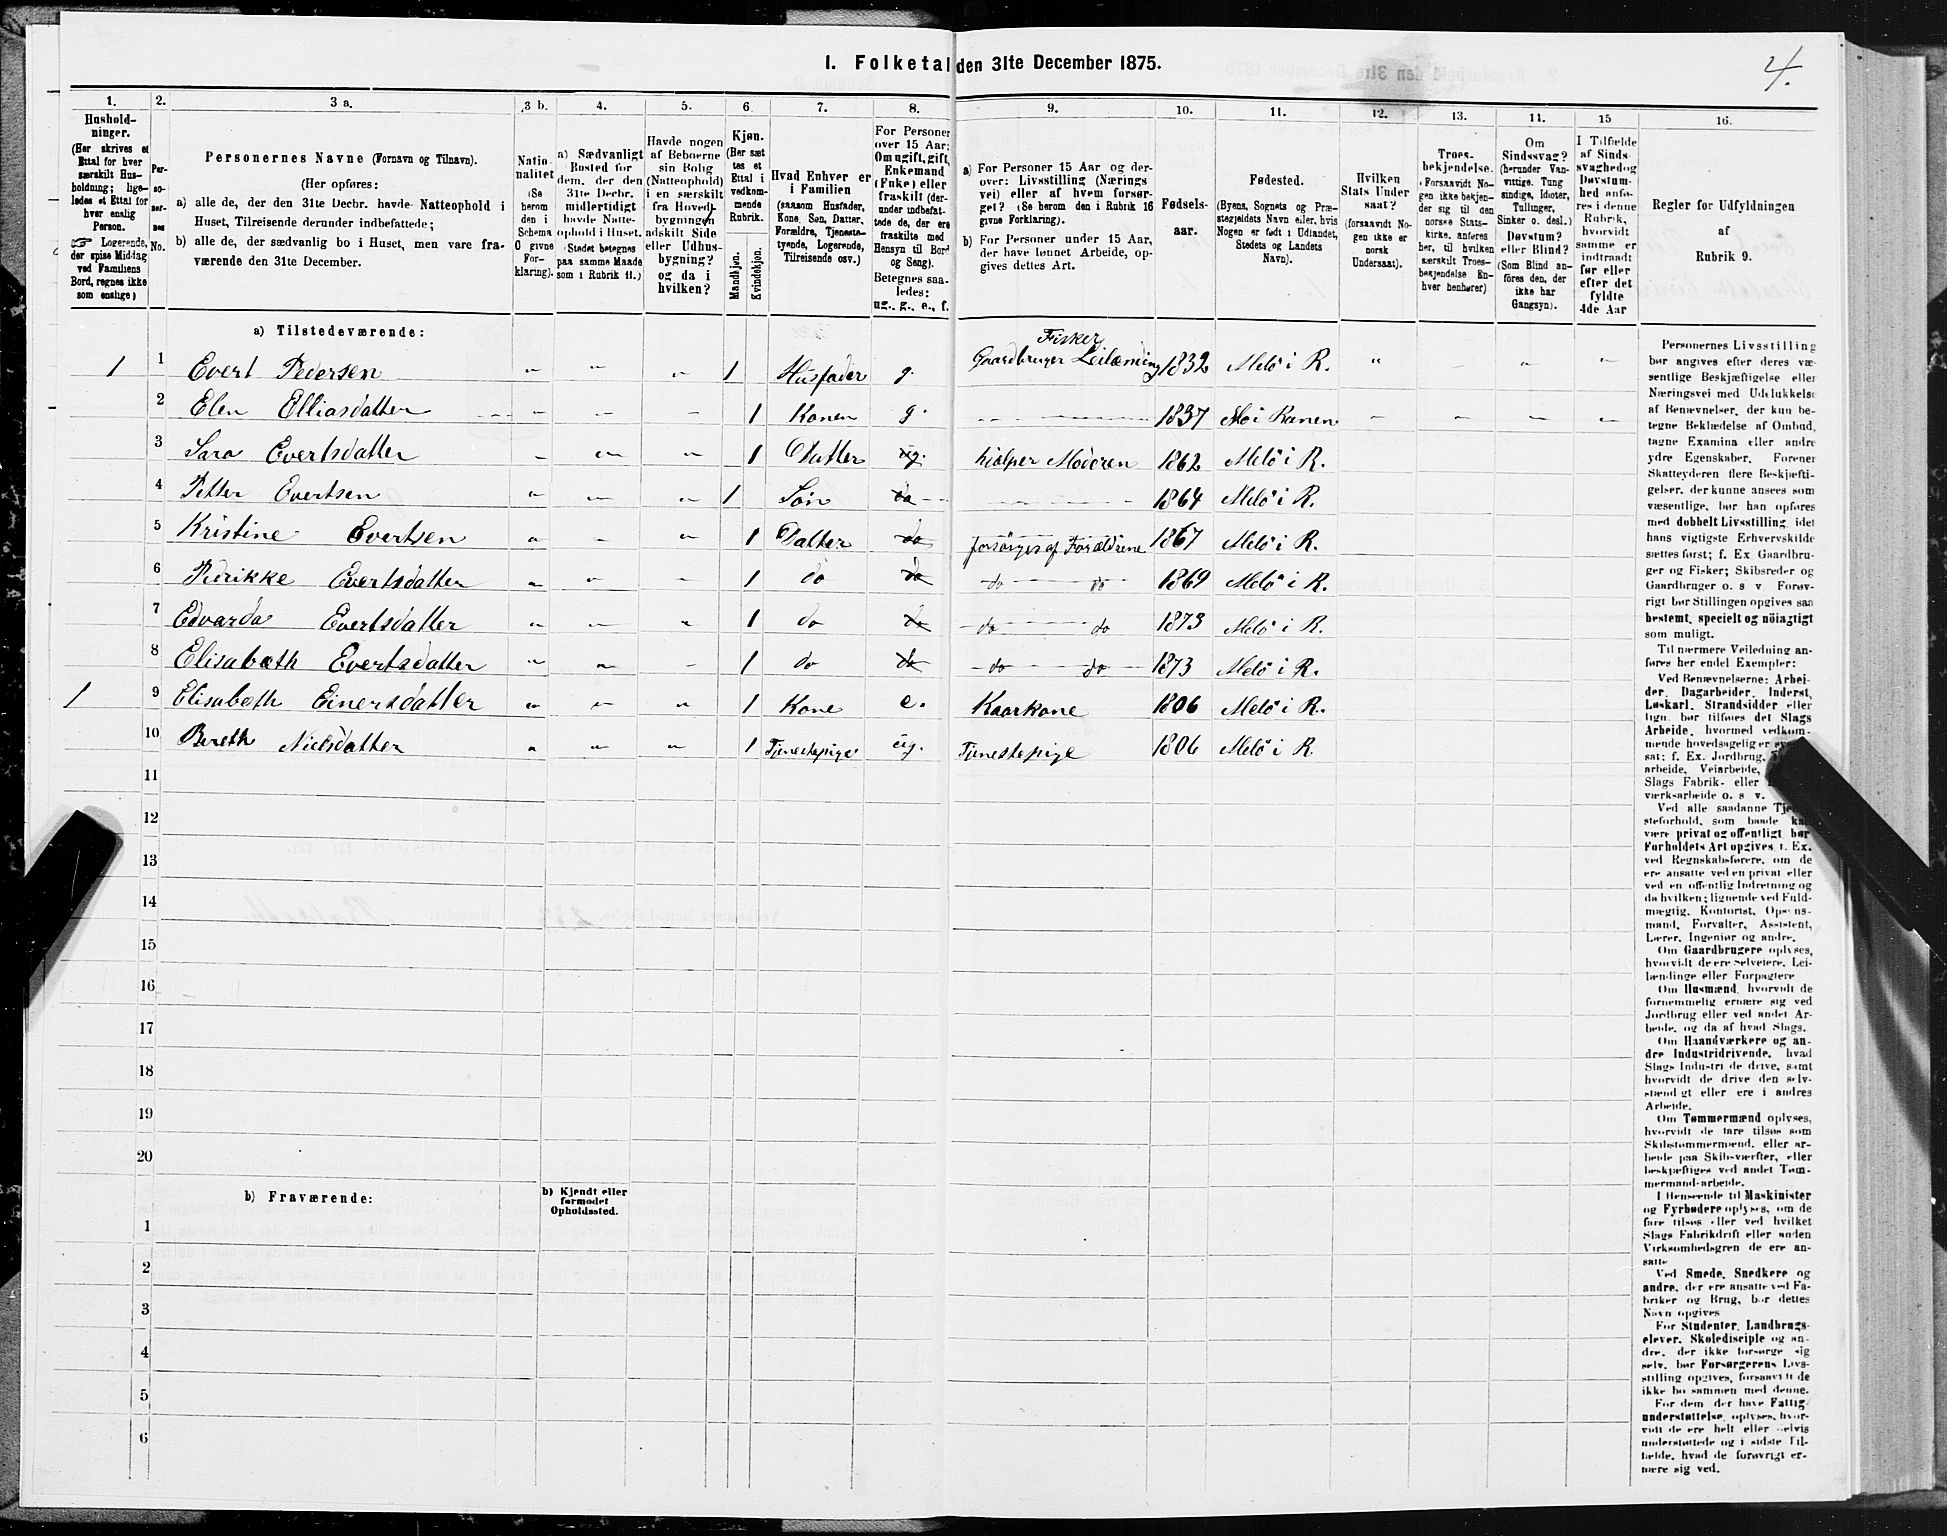 4.
I. Folketal den 31te December 1875.
1. 2. 3 a. 3 b. 4. 5. 6. 7. 8. 9. 10. 11. 12. 13. 14. 15 16.
Hushold-
ninger.
(Her skrives et
Ettal for hver
særskilt Hus-
holdning; lige-
ledes et Ettal for
hver enslig
Person.
☞ Logerende,
der spise Middag
ved Familiens
Bord, regnes ikke
som enslige)
Per-
so-
ner-
nes
No.
Personernes Navne (Fornavn og Tilnavn).
(Her opføres:
a) alle de, der den 31te Decbr. havde Natteophold i
Huset, Tilreisende derunder indbefattede;
b) alle de, der sædvanlig bo i Huset, men vare fra-
værende den 31te December.
Natio-
nalitet
(Se
herom
den i
Schema
O givne
For-
klaring).
a) Sædvanligt
Bosted for
dem, der den
31te Decbr.
midlertidigt
havde Natte-
ophold i Huset.
(Stedet betegnes
paa samme Maade
som i Rubrik 11.)
Havde nogen
af Beboerne
sin Bolig
(Natteophold)
i en særskilt
fra Hoved-
bygningen
adskilt Side
eller Udhus-
bygning?
og da i
hvilken?
Kjøn.
(Her sæt
tes et
Ettal i
vedkom-
mende
Rubrik.
Mandkjøn.
Kvindekjøn.
Hvad Enhver er
i Familien
(saasom Husfader,
Kone, Søn, Datter,
Forældre, Tjeneste-
tyende, Logerende,
Tilreisende osv.)
For Personer
over 15 Aar:
Om ugift, gift,
Enkemand
(Enke) eller
fraskilt (der-
under indbefat-
tede de, der ere
fraskilte med
Hensyn til Bord
og Seng).
Betegnes saa-
ledes:
ug., g., e., f.
a) For Personer 15 Aar og der-
over: Livsstilling (Nærings
vei) eller af hvem forsør-
get? (Se herom den i Rubrik 16
givne Forklaring).
b) For Personer under 15 Aar,
der have lønnet Arbeide, op-
gives dettes Art.
Fødsels-
aar.
Fødested.
(Byens, Sognets og Præ-
stegjeldets Navn eller, hvis
Nogen er født i Udlandet,
Stedets og Landets
Navn).
Hvilken
Stats Under
saat?
(forsaavidt No-
gen ikke er
norsk
Undersaat).
Troes-
bekjendelse.
(Forsaavidt No-
gen ikke bekjen-
der sig til den
norske Stats-
kirke, anføres
her, til hvilken
særskilt Troes-
bekjendelse En-
hver henhører)
Om
Sindssvag?
(herunder Van-
vittige, Tung
sindige, Idioter,
Tullinger,
Sinker o. desl.)
Døvstum?
eller Blind?
(Som Blind an-
føres den, der
ikke har
Gangsyn).
I Tilfælde
af Sinds-
svaghed og
Døvstum-
hed anfø-
res i denne
Rubrik,
hvorvidt
samme er
indtraadt
før eller
efter det
fyldte
4de Aar
Regler for Udfyldningen
af
Rubrik 9.
a) Tilstedeværende:
Fisker
1 1 Evert Pedersen " " " 1 Husfader g. Gaardbruger Leilænding 1832 Melö i R. " - " "
2 Elen Elliasdatter - - - 1 Konen g. 1837 Mo i Ranen - - - -
3 Sara Evertsdatter - - " 1 Datter ug. hjælper Moderen 1862 Melö i R.
4 Petter Evertsen " - " 1 Sön do 1864 Melö i R.
5 Kristine Evertsen " - " 1 Datter do forsörges af Foræeldrene 1867 Melö i R.
6 Pedrikke Evertsdatter " " - 1 do do do do 1869 Melö i R.
7 Edvarda Evertsdatter " " " 1 do do do do 1873 Melö i R.
8 Elisabæth Evertsdatter " " - 1 do do do do 1873 Melö i R.
1 9 Elisabeth Einersdatter " - " 1 Kone e. Kaarkone 1806 Melö i R.
10 Bereth Nielsdatter " " " 1 Tjenestepige ug. Tjenestepige 1806 Melö i R.
11
12
13
14
15
16
17
18
19
20
b) Fraværende:
b) Kjendt eller
formodet
Opholdssted.
1
2
3
4
5
6
Personernes Livsstilling
bør angives efter deres væ-
sentlige Beskjæftigelse eller
Næringsvei med Udelukkelse
af Benævnelser, der kun be-
tegne Beklædelse af Ombud,
tagne Examina eller andre
ydre Egenskaber. Forener
Skatteyderen flere Beskjæfti-
gelser, der kunne ansees som
væsentlige, bør han opføres
med dobbelt Livsstilling, idet
hans vigtigste Erhvervskilde
sættes først; f. Ex Gaardbru-
ger og Fisker; Skibsreder og
Gaardbruger o. s v Forøv-
rigt bør Stillingen opgives saa
bestemt, specielt og nöiagtigt
som muligt.
Til nærmere Veiledning an-
føres her endel Exempler:
Ved Benævnelserne: Arbei-
der, Dagarbeider, Inderst,
Løskarl, Strandsidder eller
lign. bør tilføies det Slags
Arbeide, hvormed vedkom-
mende hovedsagelig er
sat; f. Ex. Jordbrug,
arbeide, Veiarbeide,
Slags Fabrik- eller
værksarbeide o. s v.
Ved alle saadanne
steforhold, som baade
være privat og offentligt, bør
Forholdets Art opgives, f. Ex.
ved Regnskabsførere, om de
ere ansatte ved en privat eller
ved en offentlig Indretning og
da hvilken; lignende ved Fuld-
mægtig, Kontorist, Opsyns-
mand, Forvalter, Assistent,
Lærer, Ingeniør og andre.
Om Gaardbrugere oplyses,
hvorvidt de ere Selveiere, Lei-
lændinge eller Forpagtere
Om Husmænd, hvorvidt de
fornemmelig ernære sig ved
Jordbrug eller ved andet Ar-
beide, og da af hvad Slags.
Om Haandværkere og an-
dre Industridrivende, hvad
Slags Industri de drive, samt
hvorvidt de drive den selv-
stændigt eller ere i andres
Arbeide.
Om Tømmermænd oplyses,
hvorvidt de fare tilsøs som
Skibstømmermænd, eller ar-
beide paa Skibsværfter, eller
beskjæftiges ved andet Tøm-
mermand-arbeide.
I Henseende til Maskinister
og Fyrbødere oplyses, om de
fare tilsøs eller ved hvilket
Slags Fabrikdrift eller anden
Virksomhedsgren de ere an-
satte
Ved Smede, Snedkere og
andre, der ere ansatte ved Fa-
briker og Brug, bør dettes
Navn opgives
For Studenter, Landbrugs-
elever, Skoledisciple og an-
dre, der ikke forsørge sig
selv, bør Forsørgerens Livs-
stilling opgives, forsaavidt de
ikke bo sammen med denne.
For dem, der have Fattig-
understøttelse, oplyses, hvor-
vidt de ere helt eller delvis
understøttede og i sidste Til-
fælde, hvad de forøvrigt er-
nære sig ved.